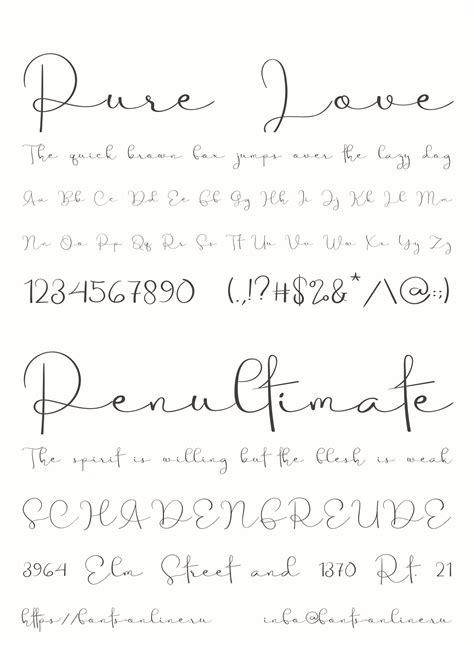 Pure Love
The quick brown fox jumps over the lazy dog
Aa Bb Cc Dd Ee Ff Gg Hh Ii Jj Kk Ll Mm
Nn Oo Pp Qq Rr Ss Tt Uu Vv Ww Xx Yy Zz
1234567890 (.,!?#$%&*/\@:;)
Penultimate
The spirit is willing but the flesh is weak
SCHADENFREUDE
3964 Elm Street and 1370 Rt. 21
https://fontsonline.ru info@fontsonline.ru